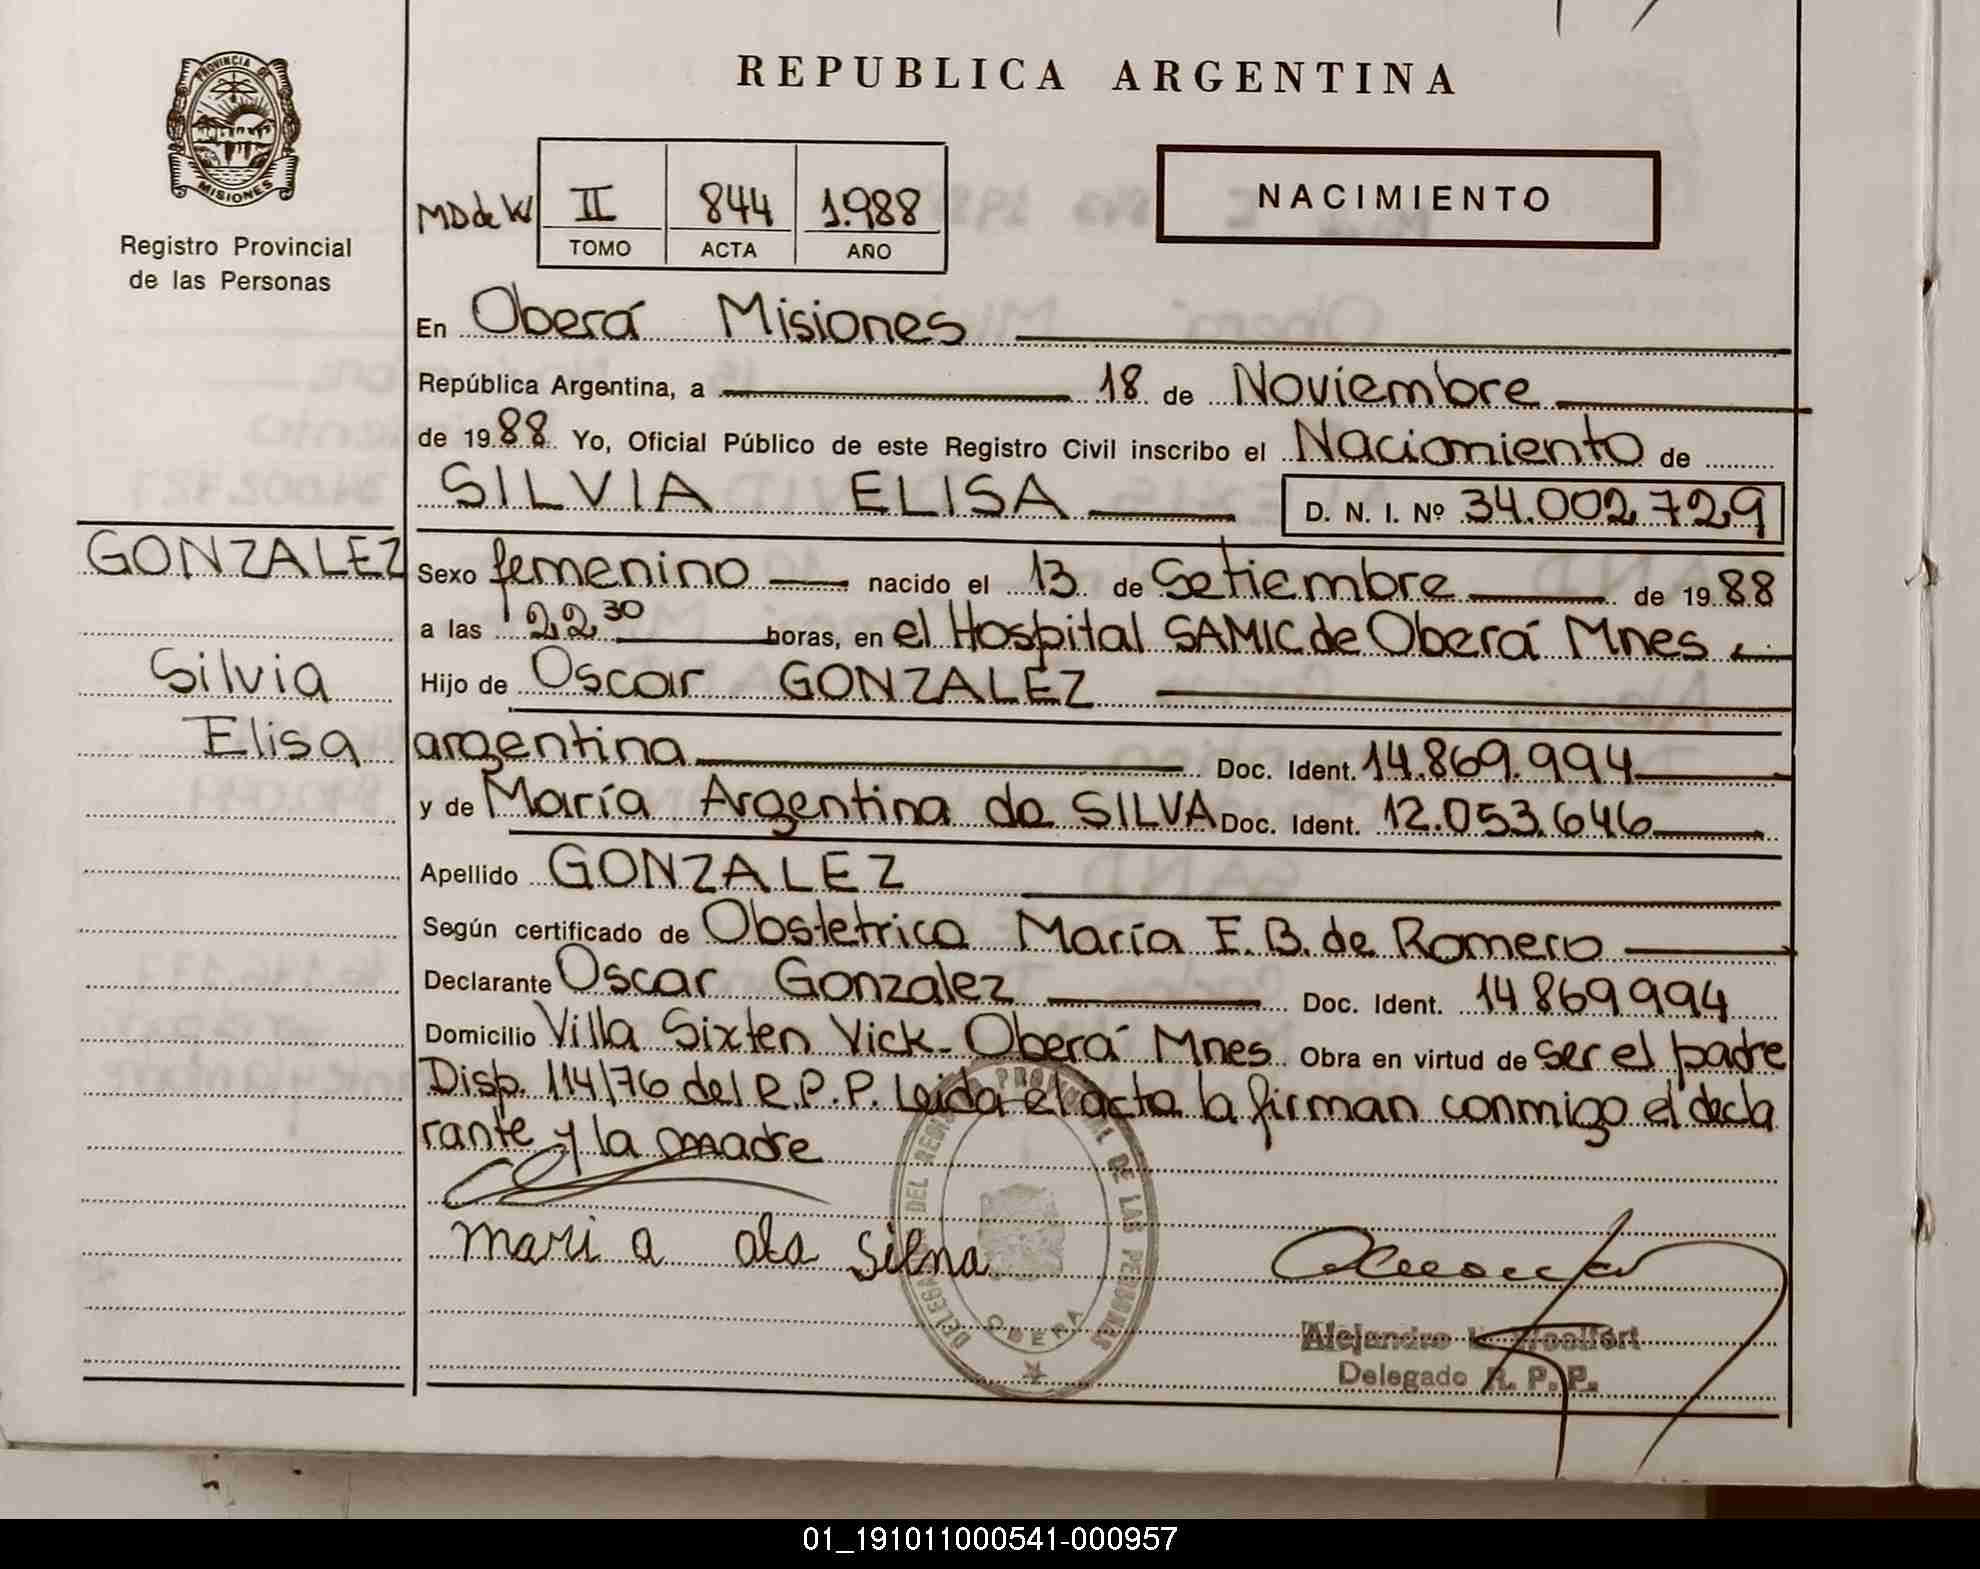 PROVINCIA DE
MISIONES
Registro Provincial
de las Personas
REPUBLICA ARGENTINA
MD de W
II 844 1.988
TOMO ACTA AÑO
NACIMIENTO
En Oberá Misiones
República Argentina, a 18 de Noviembre
de 1988 Yo, Oficial Público de este Registro Civil inscribo el Naciomiento de
SILVIA ELISA D. N. I. Nº 34.002.729
GONZALEZ
Silvia
Elisa
Sexo femenino nacido el 13 de Setiembre de 1988
a las 22,30 horas, en el Hospital SAMIC de Oberá Mnes
Hijo de Oscar GONZALEZ
argentina Doc. Ident. 14.869.994
y de María Argentina da SILVA Doc. Ident. 12.053.646
Apellido GONZALEZ
Según certificado de Obstetrica María E. B. de Romero
Declarante Oscar Gonzalez Doc. Ident. 14869994
Domicilio Villa Sixten Vick - Oberá Mnes Obra en virtud de ser el padre
Disp. 114/76 del R.P.P. Leida el acta la firman conmigo el decla
rante y la madre
DELEGA DEL REGIS PROVINCIAL DE LAS PERSONAS
OBERA
Alejandro
Delegado R. P. P.
01_191011000541-000957